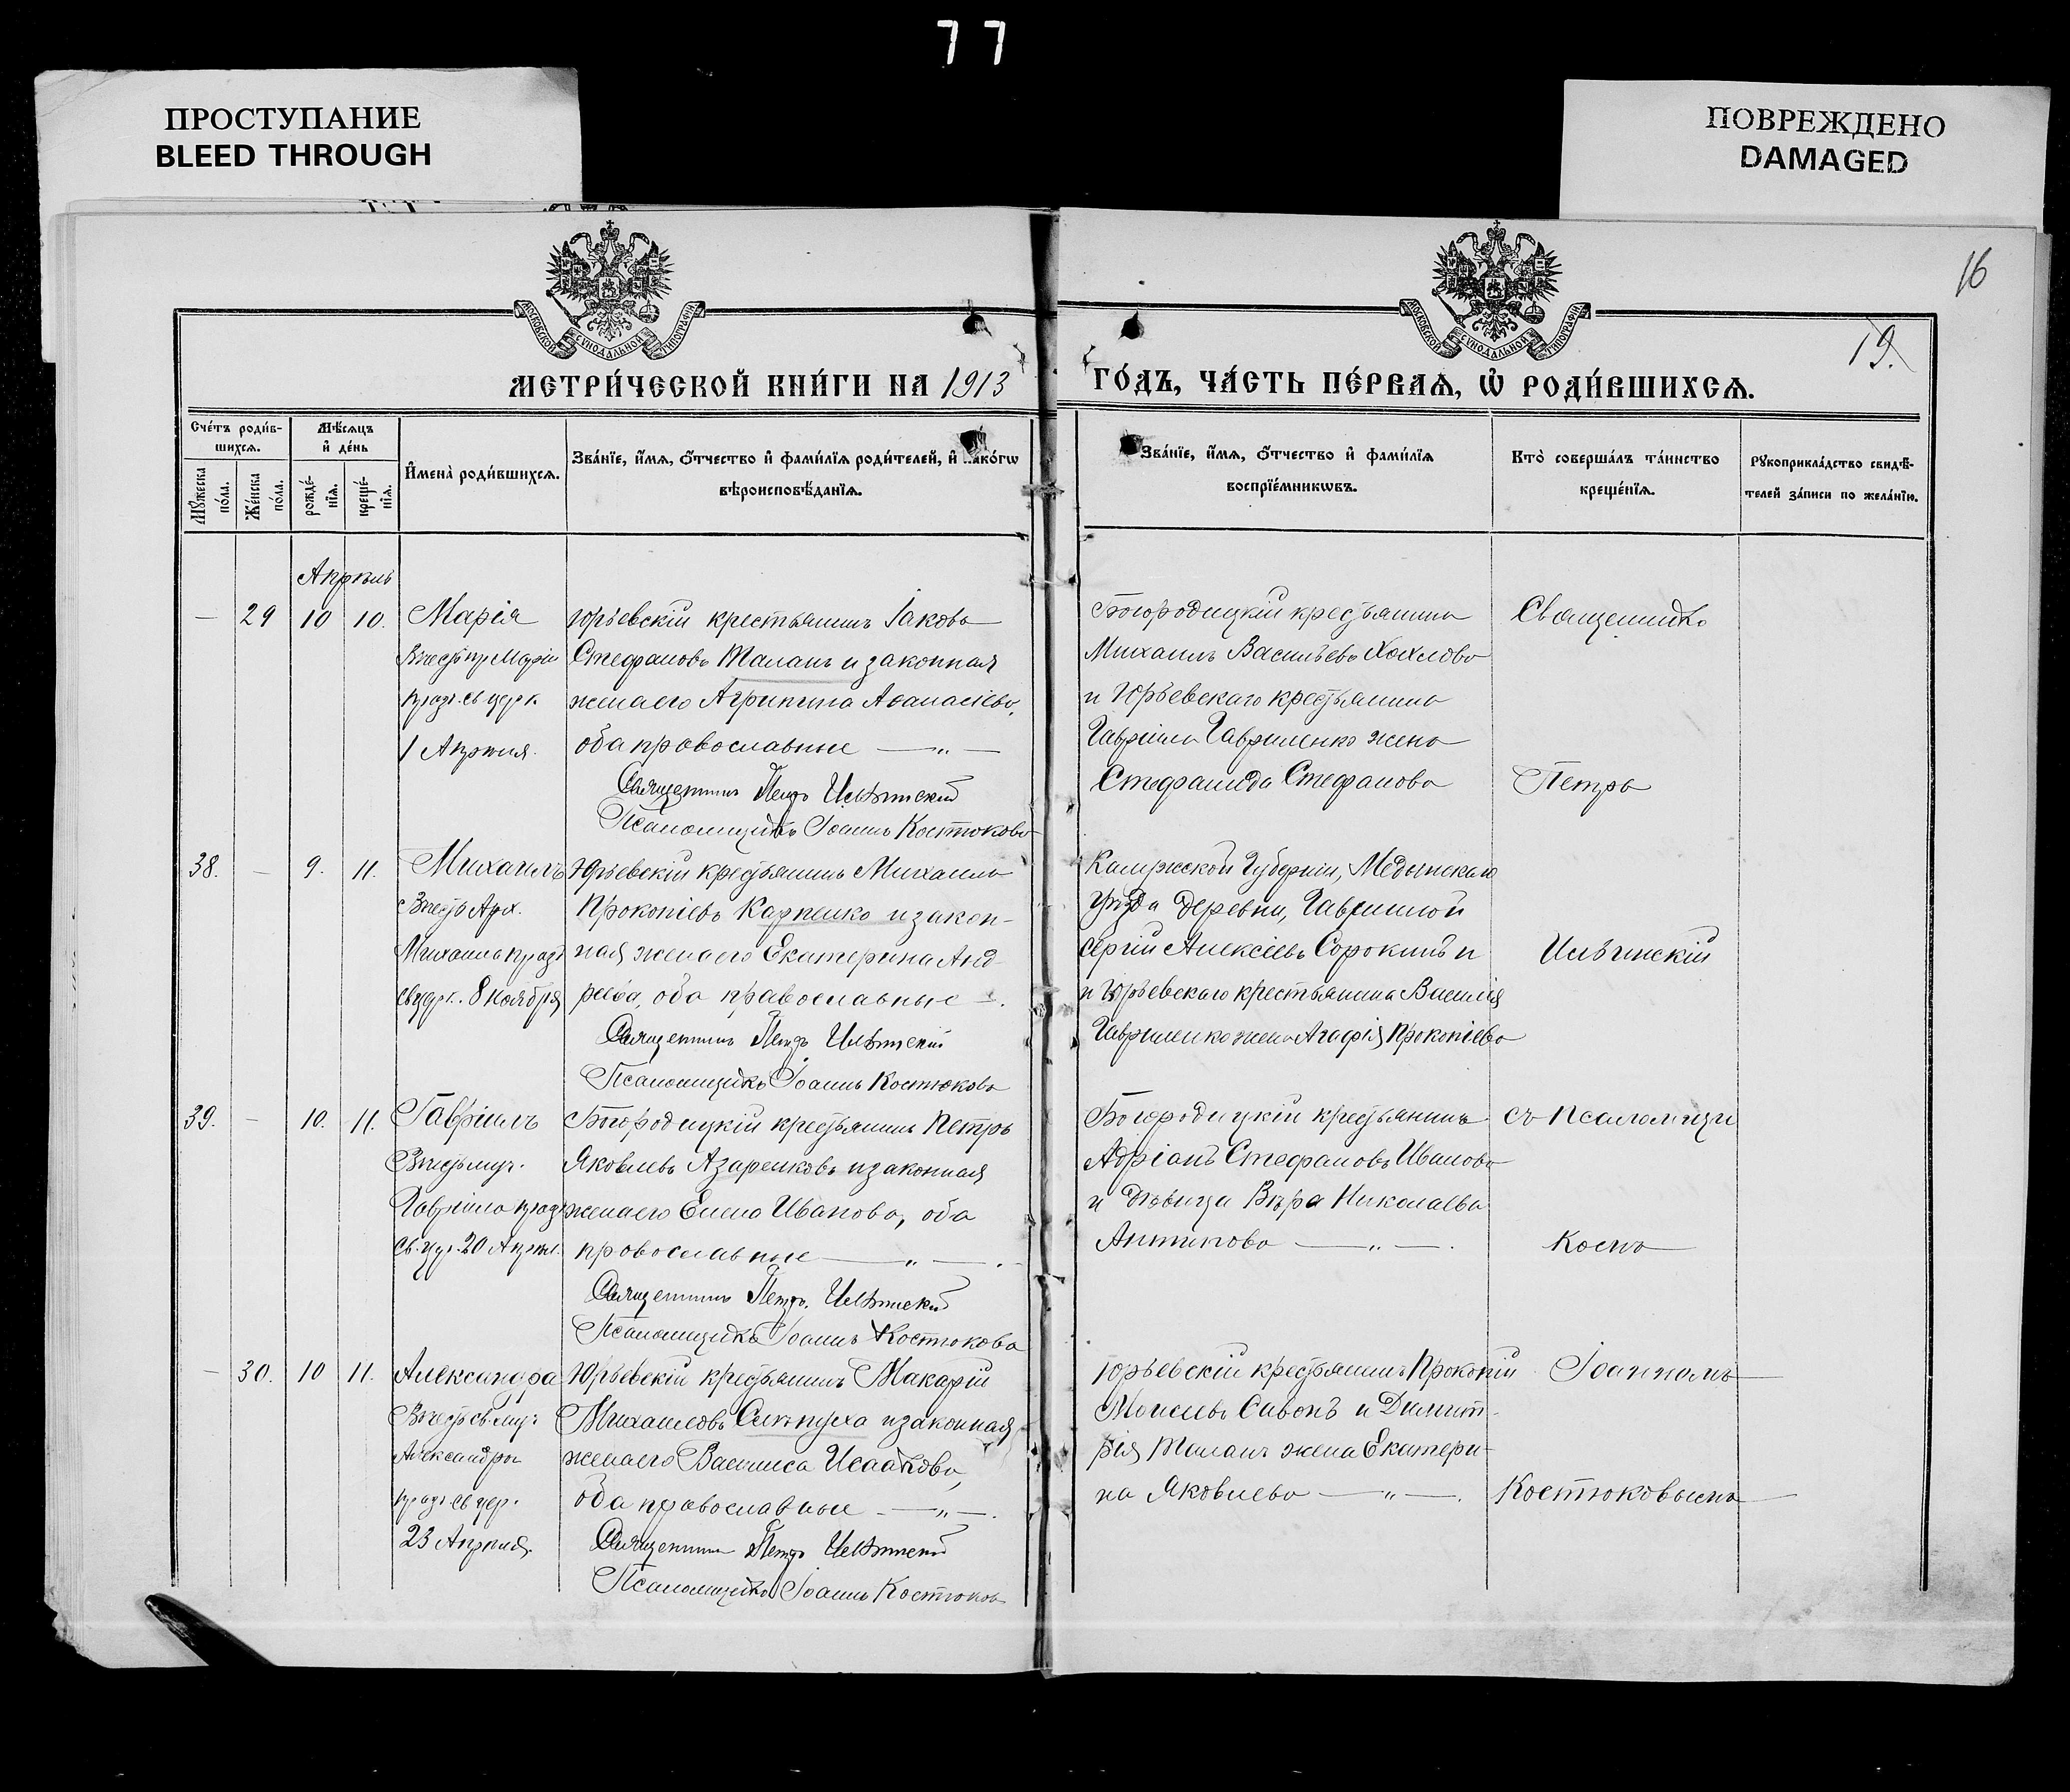 77
ПРОСТУПАНИЕ
BLEED THROUGH
ПОВРЕЖДЕНО
DAMAGED
16
19.
МОСКОВСКОЙ СУНОДАЛЬНОЙ ТИПОГРАФІИ
МОСКОВСКОЙ СУНОДАЛЬНОЙ ТИПОГРАФІИ
МЕТРИ́ЧЕСКОЙ КНИ́ГИ НА 1913
ГО́ДЪ, ЧА́СТЬ ПЕ́РВАѦ, Ѡ҆ РОДИ́ВШИХСѦ.
Сче́тъ роди́в-
шихсѧ.
Мѣ́сѧцъ
и҆ де́нь
Мꙋ́жеска
по́ла.
Же́нска
по́ла.
рожде́-
нїѧ.
креще́-
нїѧ.
И҆мена̀ роди́вшихсѧ.
Зва́нїе, и҆́мѧ, ѻ҆́тчество и҆ фами́лїѧ роди́телей, и҆ како́гѡ
вѣроисповѣ́данїѧ.
Зва́нїе, и҆́мѧ, ѻ҆́тчество и҆ фами́лїѧ
воспрїе́мникѡвъ.
Кто̀ соверша́лъ та́инство
креще́нїѧ.
Рꙋкоприкла́дство свидѣ́-
телей за́писи по жела́нїю.
Апрѣль
— 29 10 10. Марія
Въ честь пр. Маріи
празд. св. церк.
1 Апрѣля.
Юрьевскій крестьянинъ Іаковъ
Стефановъ Таланъ и законная
жена его Агрипина Аѳанасіева,
оба православные — „ —
Священникъ Петръ
Псаломщикъ Іоаннъ Костюковъ
Богородицкій крестьянинъ
Михаилъ Васильевъ Хохловъ
и Юрьевскаго крестьянина
Гавріила Гавриленко жена
Стефанида Стефанова
Священникъ
Петръ
38. — 9. 11. Михаилъ
въ честь Арх.
Михаила празд.
св. церк. 8 Ноября
Юрьевскій крестьянинъ Михаилъ
Прокопіевъ Карпенко и закон-
ная жена его Екатерина Анд-
реева, оба православные —.
Священникъ Петръ
Псаломщикъ Іоаннъ Костюковъ
Калужской Губерніи, Медынскаго
уѣзда деревни,
Сергій Алексіевъ Сорокинъ и
и Юрьевскаго крестьянина Василія
Гавриленко жена Агафія Прокопіева
39. — 10. 11. Гавріилъ
Въ честь муч.
Гавріила празд.
св. цер. 20 Апрѣл.
Богородицкій крестьянинъ Петръ
Яковлевъ Азаренковъ и законная
жена его Елена Иванова, оба
православные — „ — .
Священникъ Петръ
Псаломщикъ Іоаннъ Костюковъ
Богородицкій крестьянинъ
Адріанъ Стефановъ Ивановъ
и дѣвица Вѣра Николаева
Антипова — „ — .
съ псаломщи
комъ
— 30. 10 11. Александра
Въ честь св. муч.
Александры
празд. св. цер.
23 Апрѣля.
Юрьевскій крестьянинъ Макарій
Михаиловъ и законная
жена его Васииса Исаакова,
оба православные — „ — .
Священникъ Петръ
Псаломщикъ Іоаннъ Костюковъ
Юрьевскій крестьянинъ Прокопій
Моисеевъ Савонъ и Димит-
рія Таланъ жена Екатери-
на Яковлева — „ — .
Іоанномъ
Костюковымъ